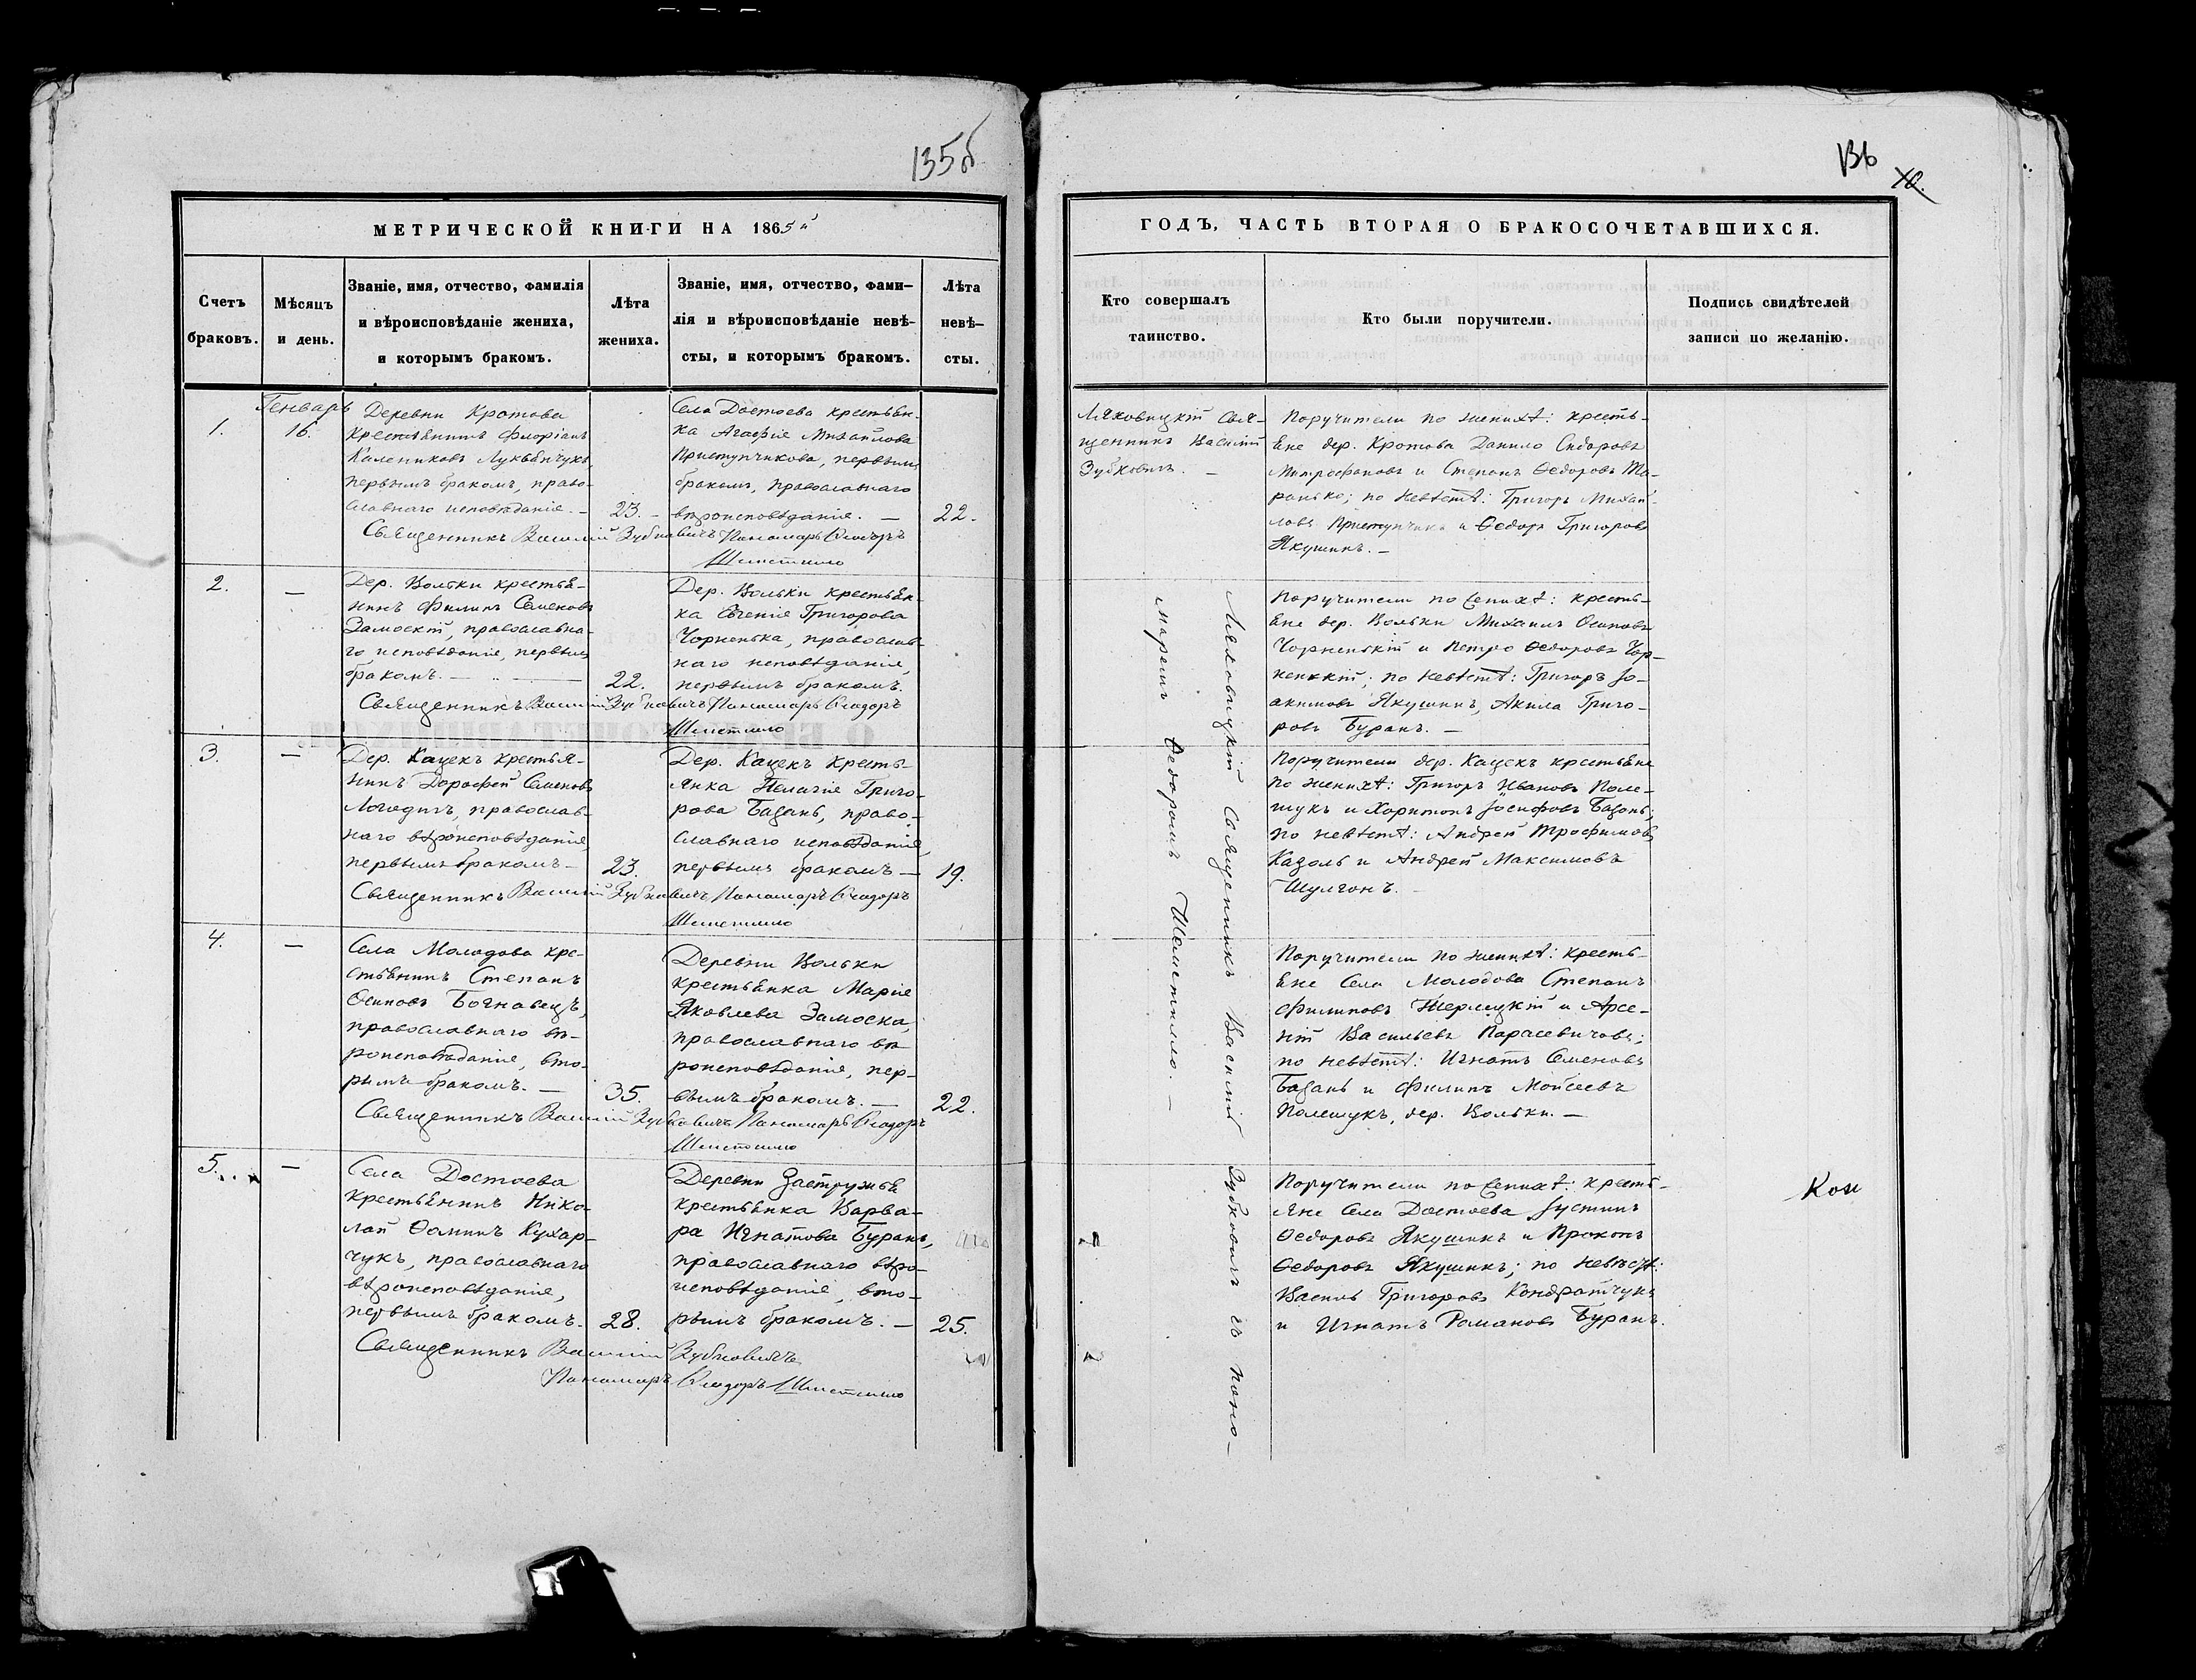 135об
136
10.
МЕТРИЧЕСКОЙ КНИГИ НА 1865й
Счетъ
браковъ.
Мѣсяцъ
и день.
Званіе, имя, отчество, фамилія
и вѣроисповѣданіе жениха,
и которымъ бракомъ.
Лѣта
жениха.
Званіе, имя, отчество, фами—
лія и вѣроисповѣданіе невѣ—
сты, и которымъ бракомъ.
Лѣта
невѣ—
сты.
1.
Генварь
16.
Деревни Кротова
крестьѣнинъ Флоріанъ
Калениковъ Лукьѣнчукъ,
первымъ бракомъ, право-
славнаго исповѣданіе. —
23. —
Села Достоева крестьѣн-
ка Агафіе Михайлова
Приступчикова, первымъ
бракомъ, православнаго
вѣроисповѣданіе. —
22.
Свѣщенникъ Василій Зубковичъ Пономарь Ѳеодоръ
Шеметилло
2.
—
Дер. Вольки крестьѣ-
нинъ Филипъ Семеновъ
Замоскій, православна-
го исповѣданіе, первымъ
бракомъ. —
22.
Дер. Вольки крестьѣн-
ка Евгеніе Григорова
Чорненька, православ-
наго исповѣданіе,
первымъ бракомъ.
Свѣщенникъ Василій Зубковичъ Пономарь Ѳеодоръ
Шеметилло
3.
—
Дер. Кацекъ крестья-
нинъ Дорофей Семеновъ
православ-
наго вѣроисповѣданіе,
первымъ бракомъ —
23.
Дер. Кацекъ кресть-
янка Пелагіе Григо-
рова Базань, право-
славнаго исповѣданіе,
первымъ бракомъ —
19.
Свѣщенникъ Василій Зубковичъ Пономарь Ѳеодоръ
Шеметилло
4.
—
Села Молодова кре-
стьѣнинъ Степанъ
Осиповъ Богнавецъ,
православнаго вѣ-
роисповѣданіе, вто-
рымъ бракомъ. —
35.
Деревни Вольки
крестьѣнка Маріе
Яковлева Замоска,
православнаго вѣ-
роисповѣданіе, пер-
вымъ бракомъ. —
22.
Свѣщенникъ Василій Зубковичъ Пономарь Ѳеодоръ
Шеметилло
5.
—
Села Достоева
крестьѣнинъ Нико-
лай Ѳоминъ Кухар-
чукъ, православнаго
вѣроисповѣданіе,
первымъ бракомъ.
28.
Деревни Застружьѣ
крестьѣнка Варва-
ра Игнатова Буранъ,
православнаго вѣро-
исповѣданіе, вто-
рымъ бракомъ. —
25.
Свѣщенникъ Василій Зубковичъ
Пономарь Ѳеодоръ Шеметилло
ГОДЪ, ЧАСТЬ ВТОРАЯ О БРАКОСОЧЕТАВШИХСЯ.
Кто совершалъ
таинство.
Кто были поручители.
Подпись свидѣтелей
записи по желанію.
Лѣховицкій свѣ-
щенникъ Василій
Зубковичъ. —
Поручители по женихѣ: кресть-
ѣне дер. Кротова Данило Сидоровъ
Митрофановъ и Степанъ Ѳедоровъ Та-
ранько; по невѣстѣ: Григоръ Михай-
ловъ Приступчикъ и Ѳедоръ Григоровъ
Якушикъ. —
Лѣховицкій Свѣщенникъ Василій Зубковичъ съ поно-
маремъ Ѳедоромъ Шеметилло. —
Поручители по женихѣ: кресть-
ѣне дер. Вольки Михаилъ Осиповъ
Чорненькій и Петро Ѳедоровъ Чор-
ненкій; по невѣстѣ: Григоръ Іо-
акимовъ Якушикъ, Акила Григо-
ровъ Буранъ. —
Поручители дер. Кацекъ крестьѣне
по женихѣ: Григоръ Ивановъ Поле-
щукъ и Харитонъ Іосифовъ Базань;
по невѣстѣ: Андрей Трофимовъ
Казоль и Андрей Максимовъ
Шулгонъ. —
Поручители по женихѣ: кресть-
ѣне села Молодова Степанъ
Филиповъ Жерлицкій и Арсе-
ній Васильевъ Парасевичовъ;
по невѣстѣ: Игнатъ Семеновъ
Базань и Филипъ Мойсеевъ
Полещукъ, дер. Вольки. —
Поручители по женихѣ: кресть-
яне села Достоева Іустинъ
Ѳедоровъ Якушикъ и Прокопъ
Ѳедоровъ Якушикъ; по невѣстѣ:
Василь Григоровъ Кондратчукъ
и Игнатъ Романовъ Буранъ.
Кон